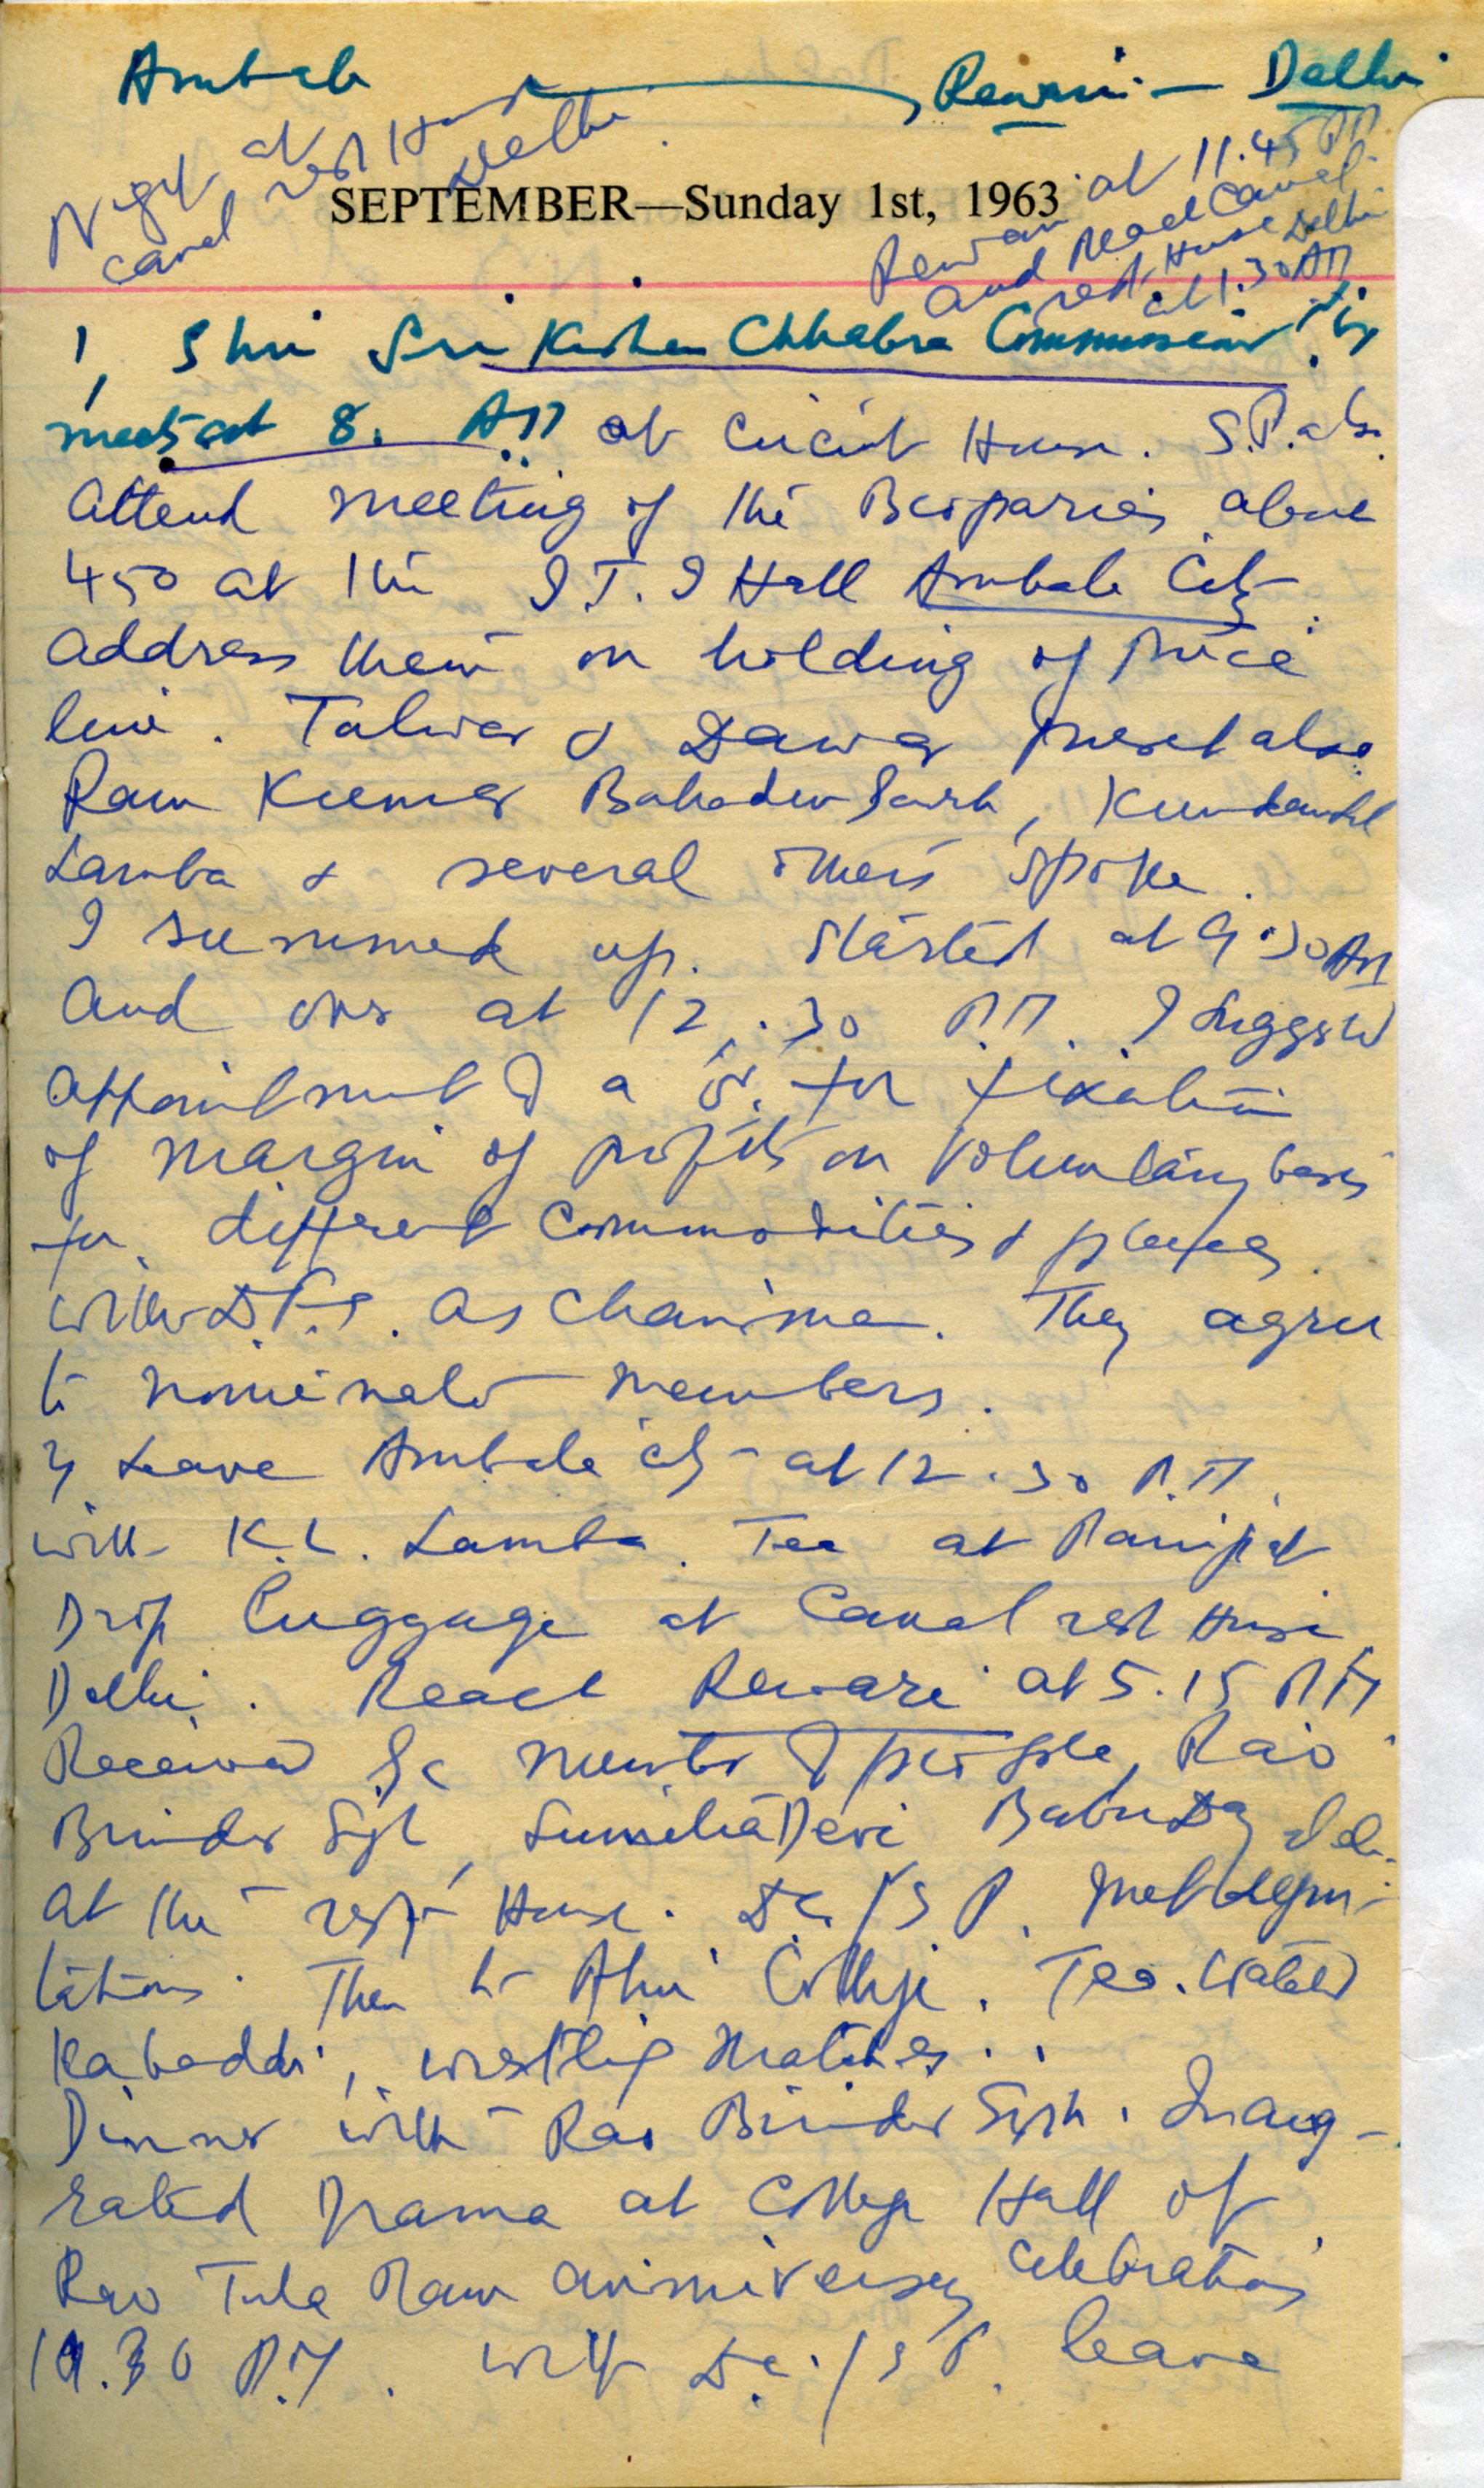 Ambala Rewari - Delhi
Night at
canal rest House
Delhi
SEPTEMBER—Sunday 1st, 1963
Rewari at 11.45 PM
and reach Canal
rest House Delhi
at 1.30 AM
1, Shri Sri Kishan Chhabra Commissioner
meets at 8. AM at Circuit House. S.P. also.
Attend meeting of the Beoparies about
450 at the I.T.I Hall Ambala City.
Address them on holding of price
line. Talwar & Dawar present also
Ram Kumar Bahadurgarh, Kundanlal
Lamba & several others spoke.
I summed up. Started at 9.30 AM
and over at 12.30 P.M. I suggested
appointment of a for fixation
of margin of profits on voluntary basis
for different commodities & places
with as Chairman. They agree
to nominate members.
2, Leave Ambala city at 12.30 P.M.
with K.L. Lamba. Tea at Panipat
Drop luggage at Canal rest House
Delhi. Reach Rewari at 5.15 PM
Received number of people, Rao
Birinder Singh, Sumitra Devi, Babu Dayal
at the rest House. D.C./S.P. met depu-
tations. Then to Ahir College. Tea. Watched
Kabaddi, wrestling matches.
Dinner with Rao Birinder Singh. Inaug-
rated Drama at College Hall of
Rao Tula Ram anniversary celebrations
P.M. with D.C./S.P. leave